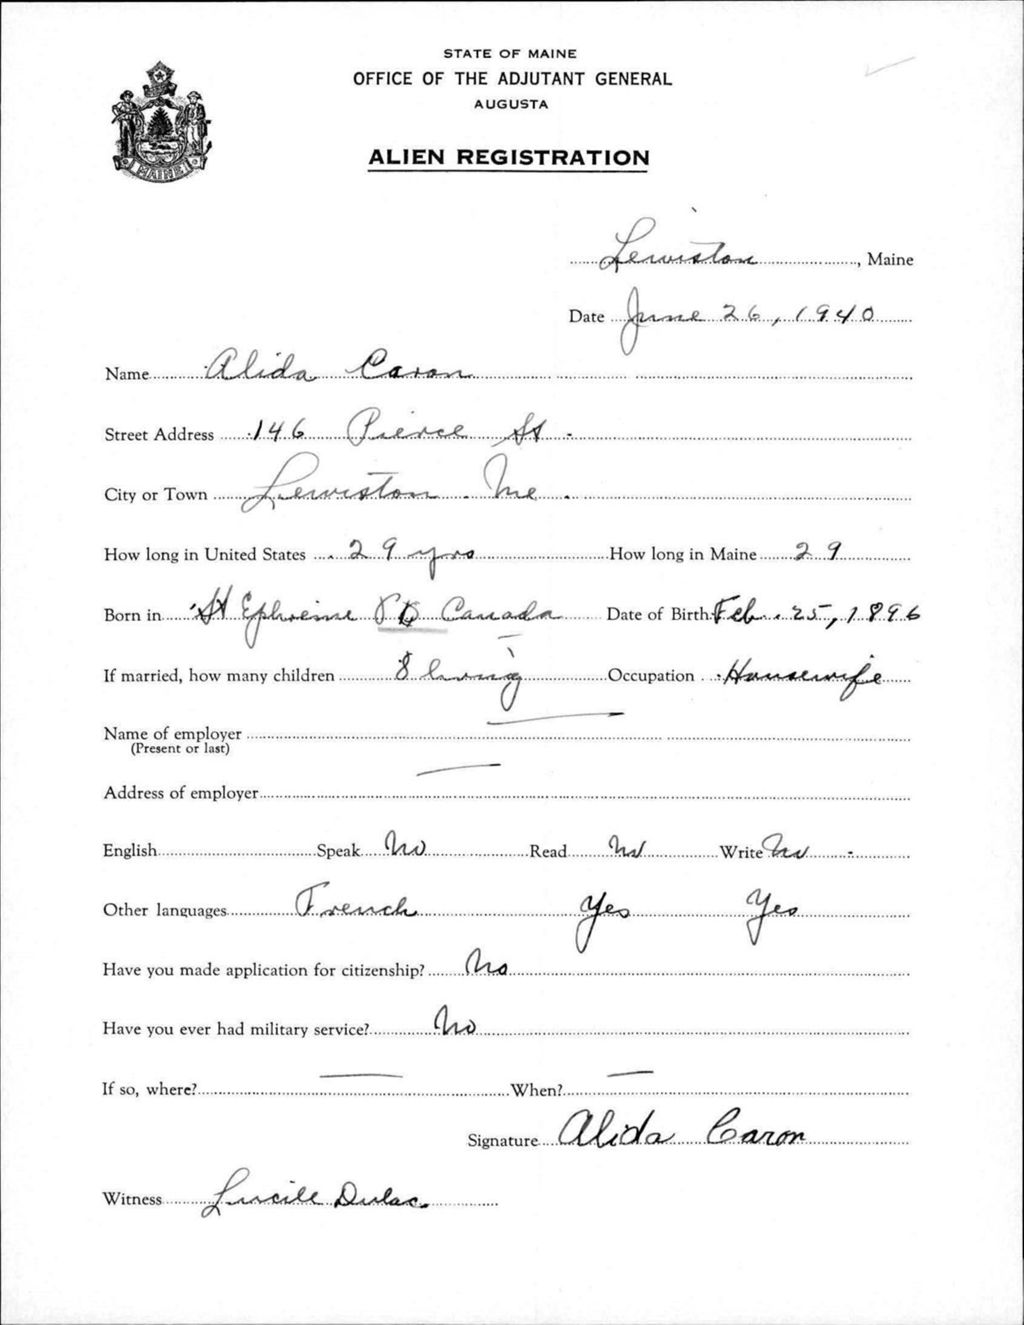 STATE OF MAINE
OFFICE OF THE ADJUTANT GENERAL
AUGUSTA
ALIEN REGISTRATION
MAINE
Lewiston, Maine
Date June 26, 1940
Name Alida Caron
Street Address 146 Pierce St
City or Town Lewiston Me.
How long in United States 29 yrs How long in Maine 29
Born in St Ephreime P.Q Canada Date of Birth Feb. 25, 1896
If married, how many children 8 living Occupation Housewife
Name of employer
(Present or last)
Address of employer
English Speak No Read No Write No
Other languages French Yes Yes
Have you made application for citizenship? No
Have you ever had military service? No
If so, where? When?
Signature Alida Caron
Witness Lucille Dulac